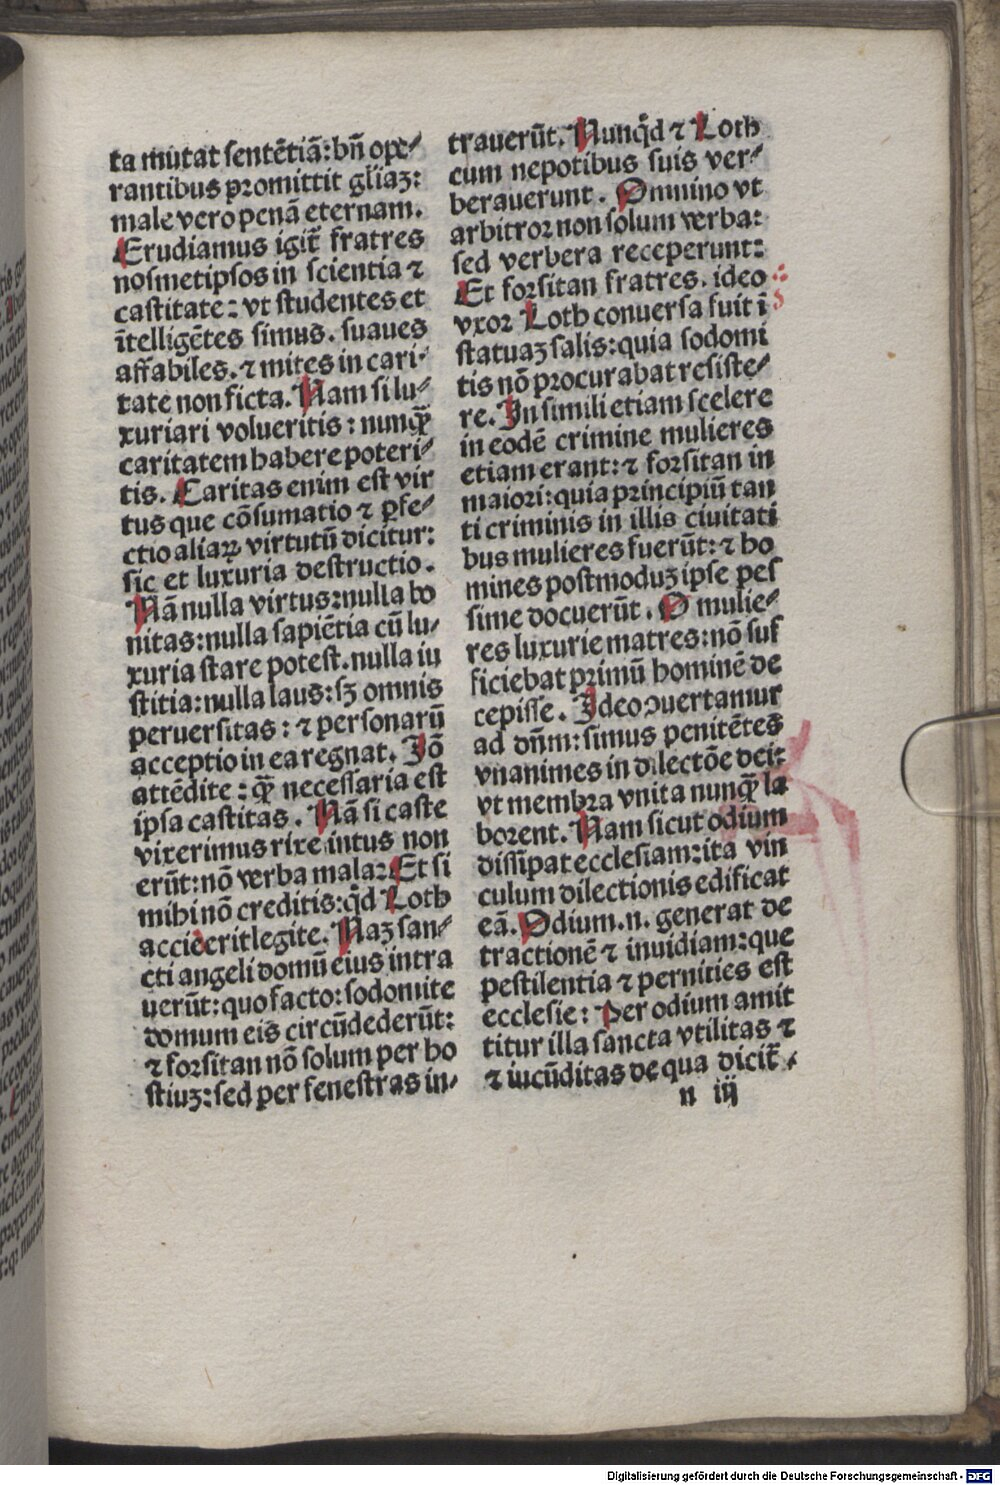 ta mutat sentẽtiã: bñ ope-
rantibus promittit gliaꝫ:
male vero penã eternam.
Erudiamus igit̃ fratres
nosmetipsos in scientia ⁊
castitate: vt studentes et
ĩtelligẽtes simus. suaues
affabiles. ⁊ mites in cari-
tate non ficta. Nam si lu-
xuriari volueritis: nunq̃
caritatem habere poteri-
tis. Caritas enim est vir
tus que cõsumatio ⁊ ꝑfe-
ctio aliaꝝ virtutũ dicitur:
sic et luxuria destructio.
Nã nulla virtus: nulla bo
nitas: nulla sapiẽtia cũ lu-
xuria stare potest. nulla iu
stitia: nulla laus: sꝫ omnis
peruersitas: ⁊ personarũ
acceptio in ea regnat. Iõ
attẽdite: q̃ necessaria est
ipsa castitas. Nã si caste
vixerimus rixe intus non
erũt: nõ verba mala: Et si
mihi nõ creditis: q̇d Loth
acciderit legite. Naꝫ san-
cti angeli domũ eius intra
uerũt: quo facto: sodomite
domum eis circũdederũt:
⁊ forsitan nõ solum per ho
stiuꝫ: sed per fenestras in-
trauerũt. Nunq̇d ⁊ Loth
cum nepotibus suis ver-
berauerunt. Omnino vt
arbitror non solum verba:
sed verbera receperunt:
Et forsitan fratres. ideo
vxor Loth conuersa fuit ĩ
statuaꝫ salis: quia sodomi
tis nõ procurabat resiste-
re. In simili etiam scelere
in eodẽ crimine mulieres
etiam erant: ⁊ forsitan in
maiori: quia principiũ tan
ti criminis in illis ciuitati
bus mulieres fuerũt: ⁊ ho
mines postmoduꝫ ipse pes
sime docuerũt. O mulie-
res luxurie matres: nõ suf
ficiebat primũ hominẽ de
cepisse. Ideo ↄuertamur
ad dñm: simus penitẽtes
vnanimes in dilectõe dei:
vt membra vnita nunq̃ la
borent. Nam sicut odium
dissĩpat ecclesiam: ita vin
culum dilectionis edificat
eã. Odium .n. generat de
tractionẽ ⁊ inuidiam: que
pestilentia ⁊ pernities est
ecclesie: Per odium amit
titur illa sancta vtilitas ⁊
⁊ iucũditas de qua dicit̃.
n iij
Digitalisierung gefördert durch die Deutsche Forschungsgemeinschaft - DFG